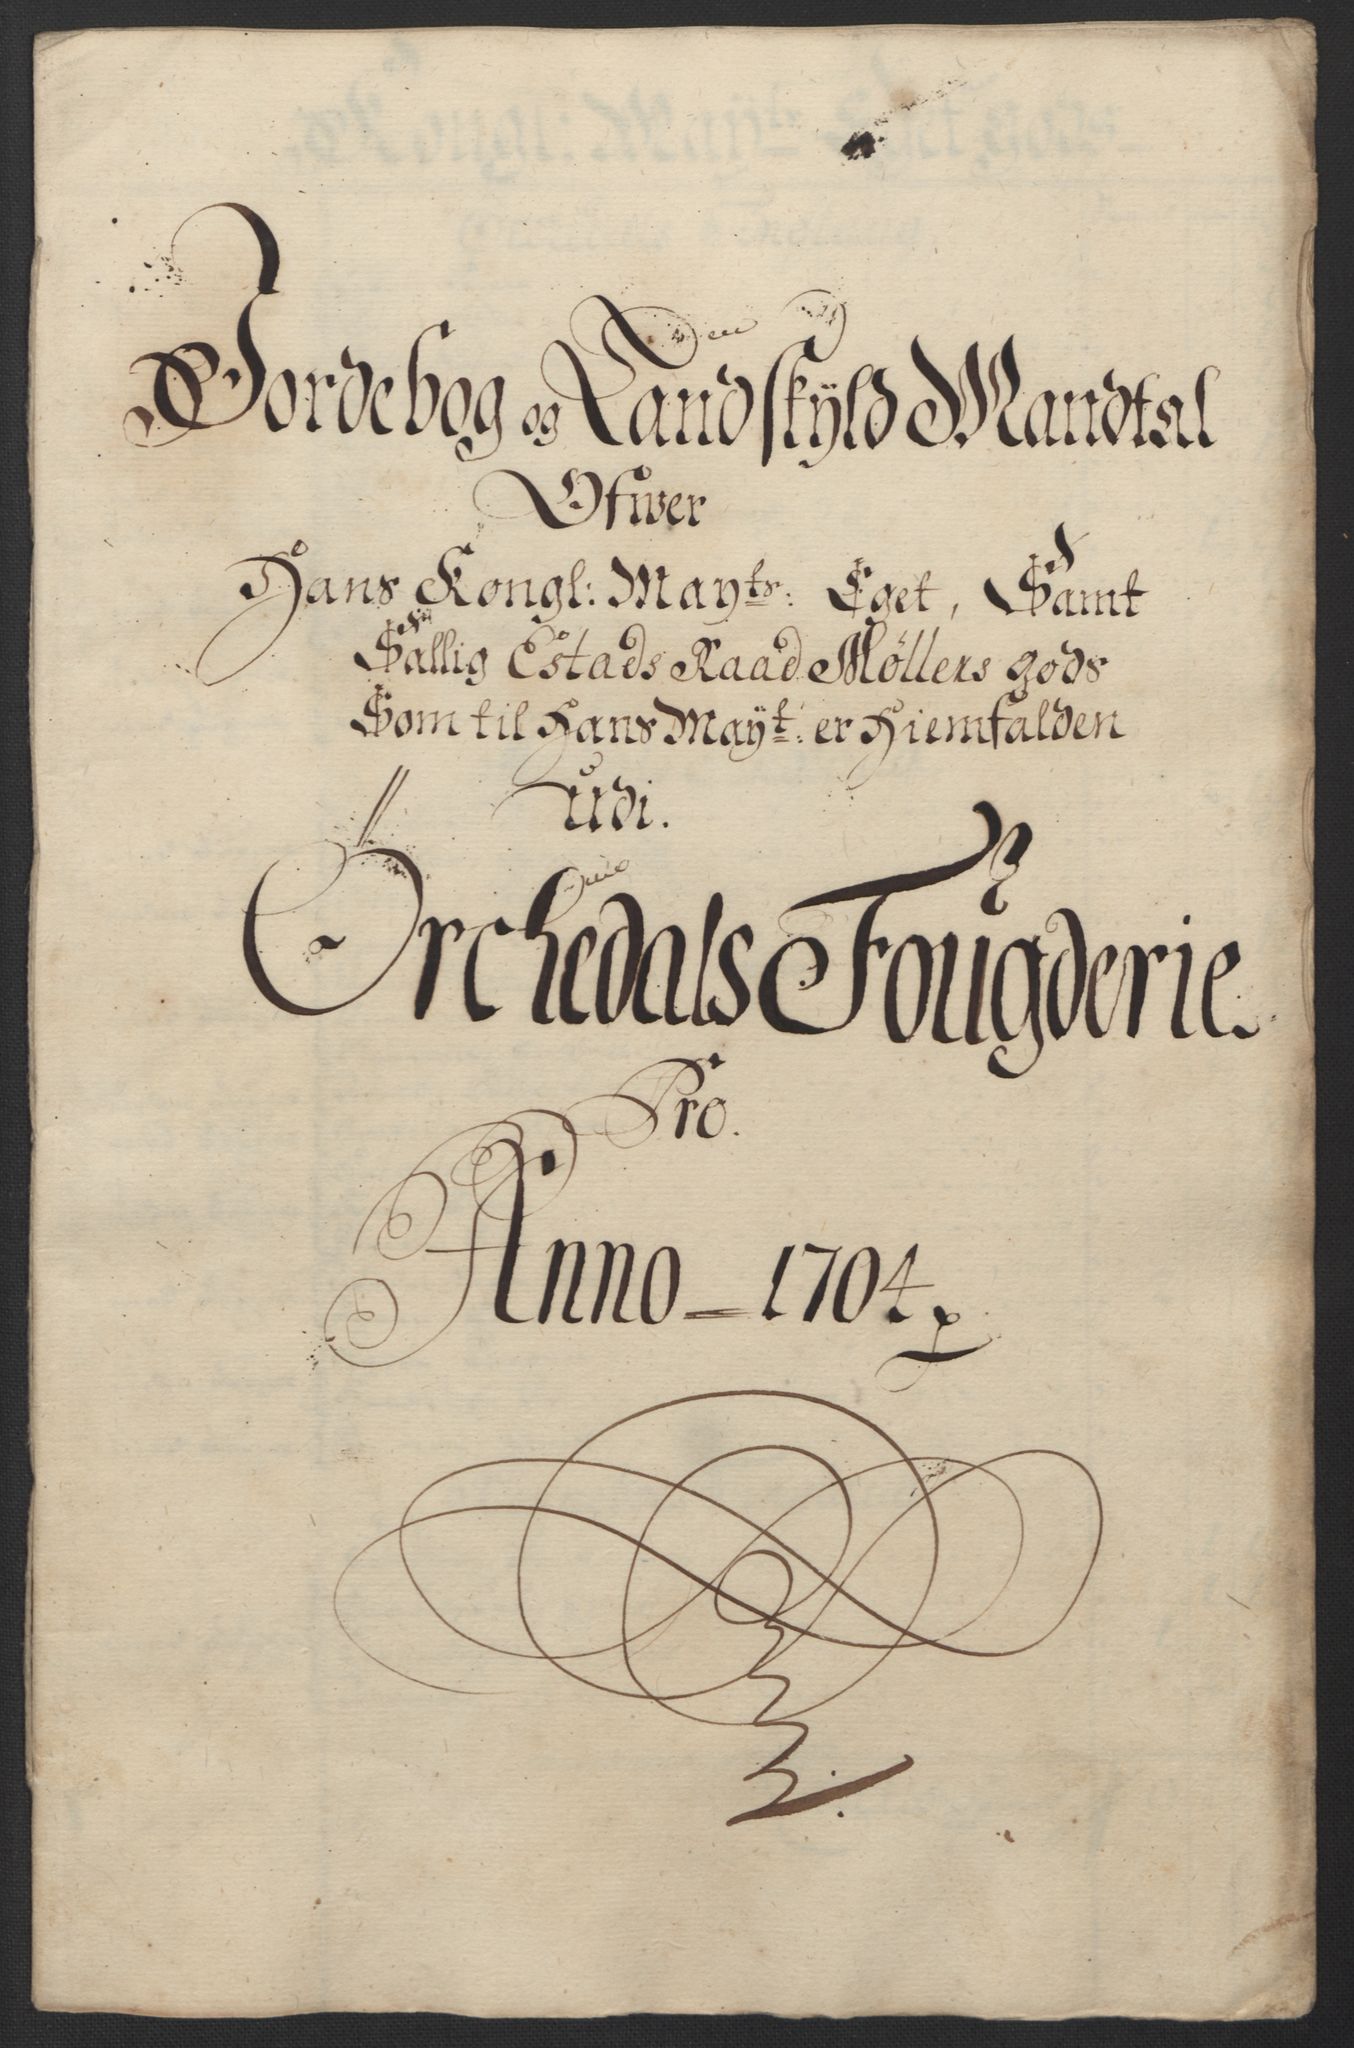 Jordebog og Landskyld Mandtal
Ofwer
Hans Kongl: Mayts: Eget, Samt
Sallig Estads Raad Møllers gods
Som til Hans Mayt: er Hiemfalden
Udi.
Orchedals Fougderie.
Pro.
Anno - 1704